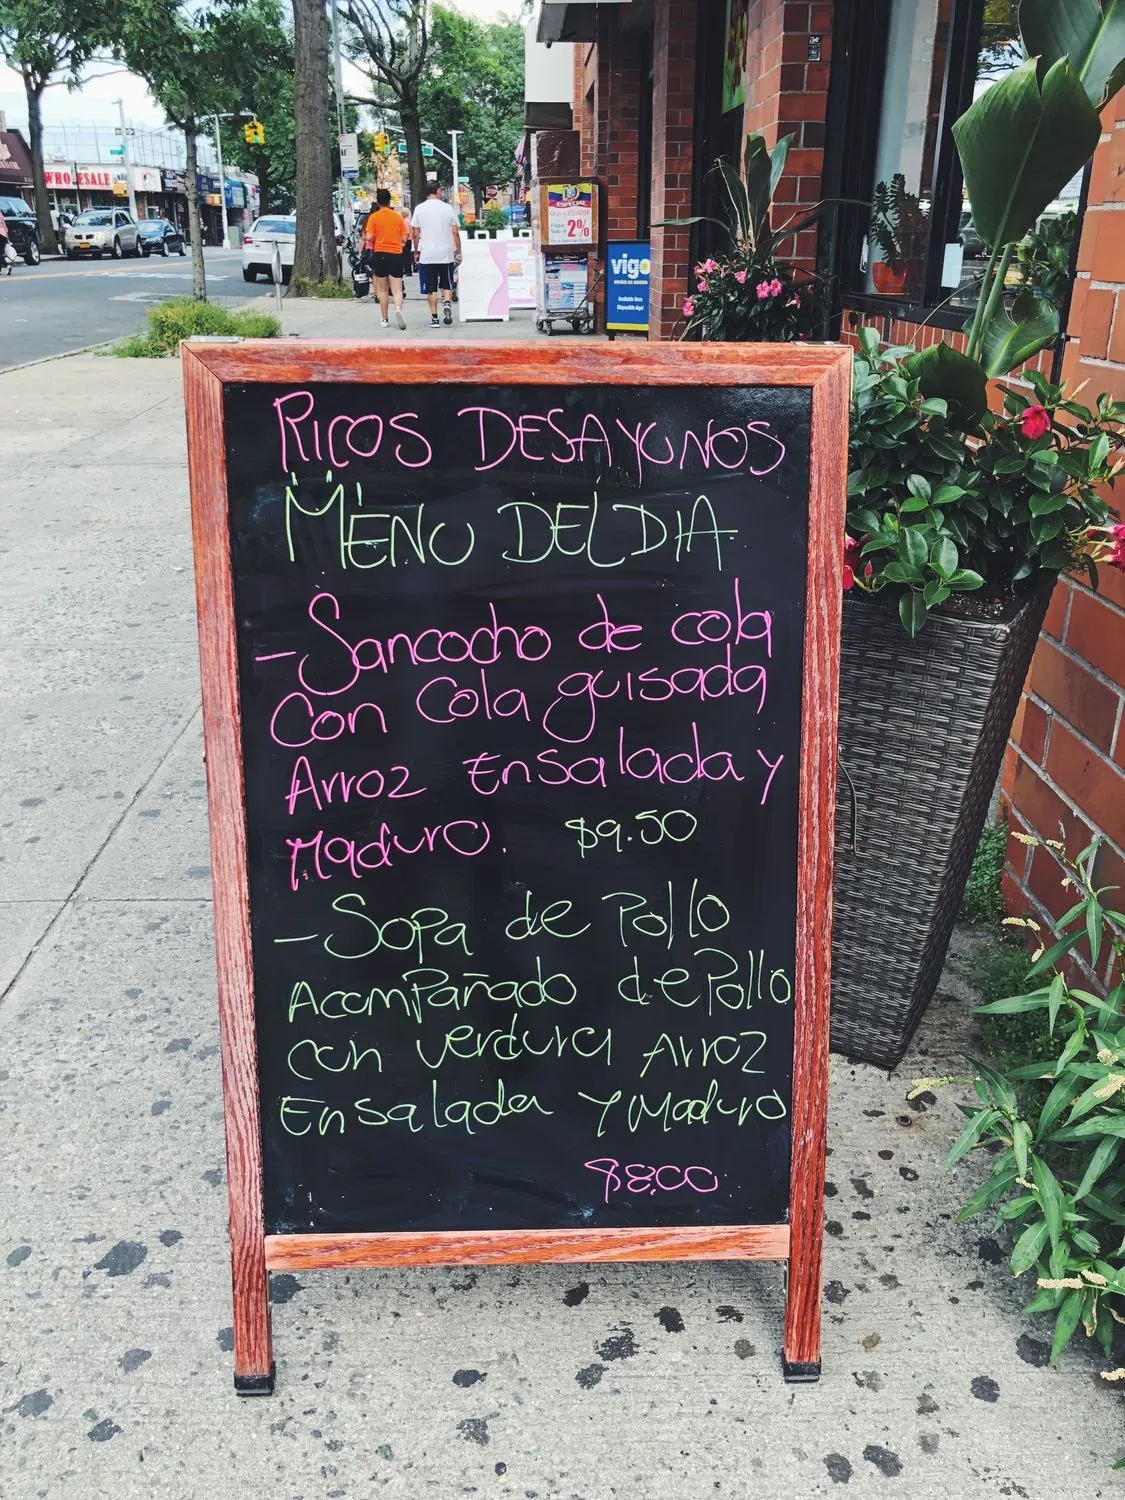 WHOLESALE
ESPECIAL
2%
vigo
Available Here
Disponible Aquí
RICOS DESAYUNOS
MENU DEL DIA
- Sancocho de cola
Con Cola guisada
Arroz Ensalada y
Maduro. $9.50
- Sopa de Pollo
Acompañado de Pollo
con verdura Arroz
Ensalada Y Maduro
$8.00